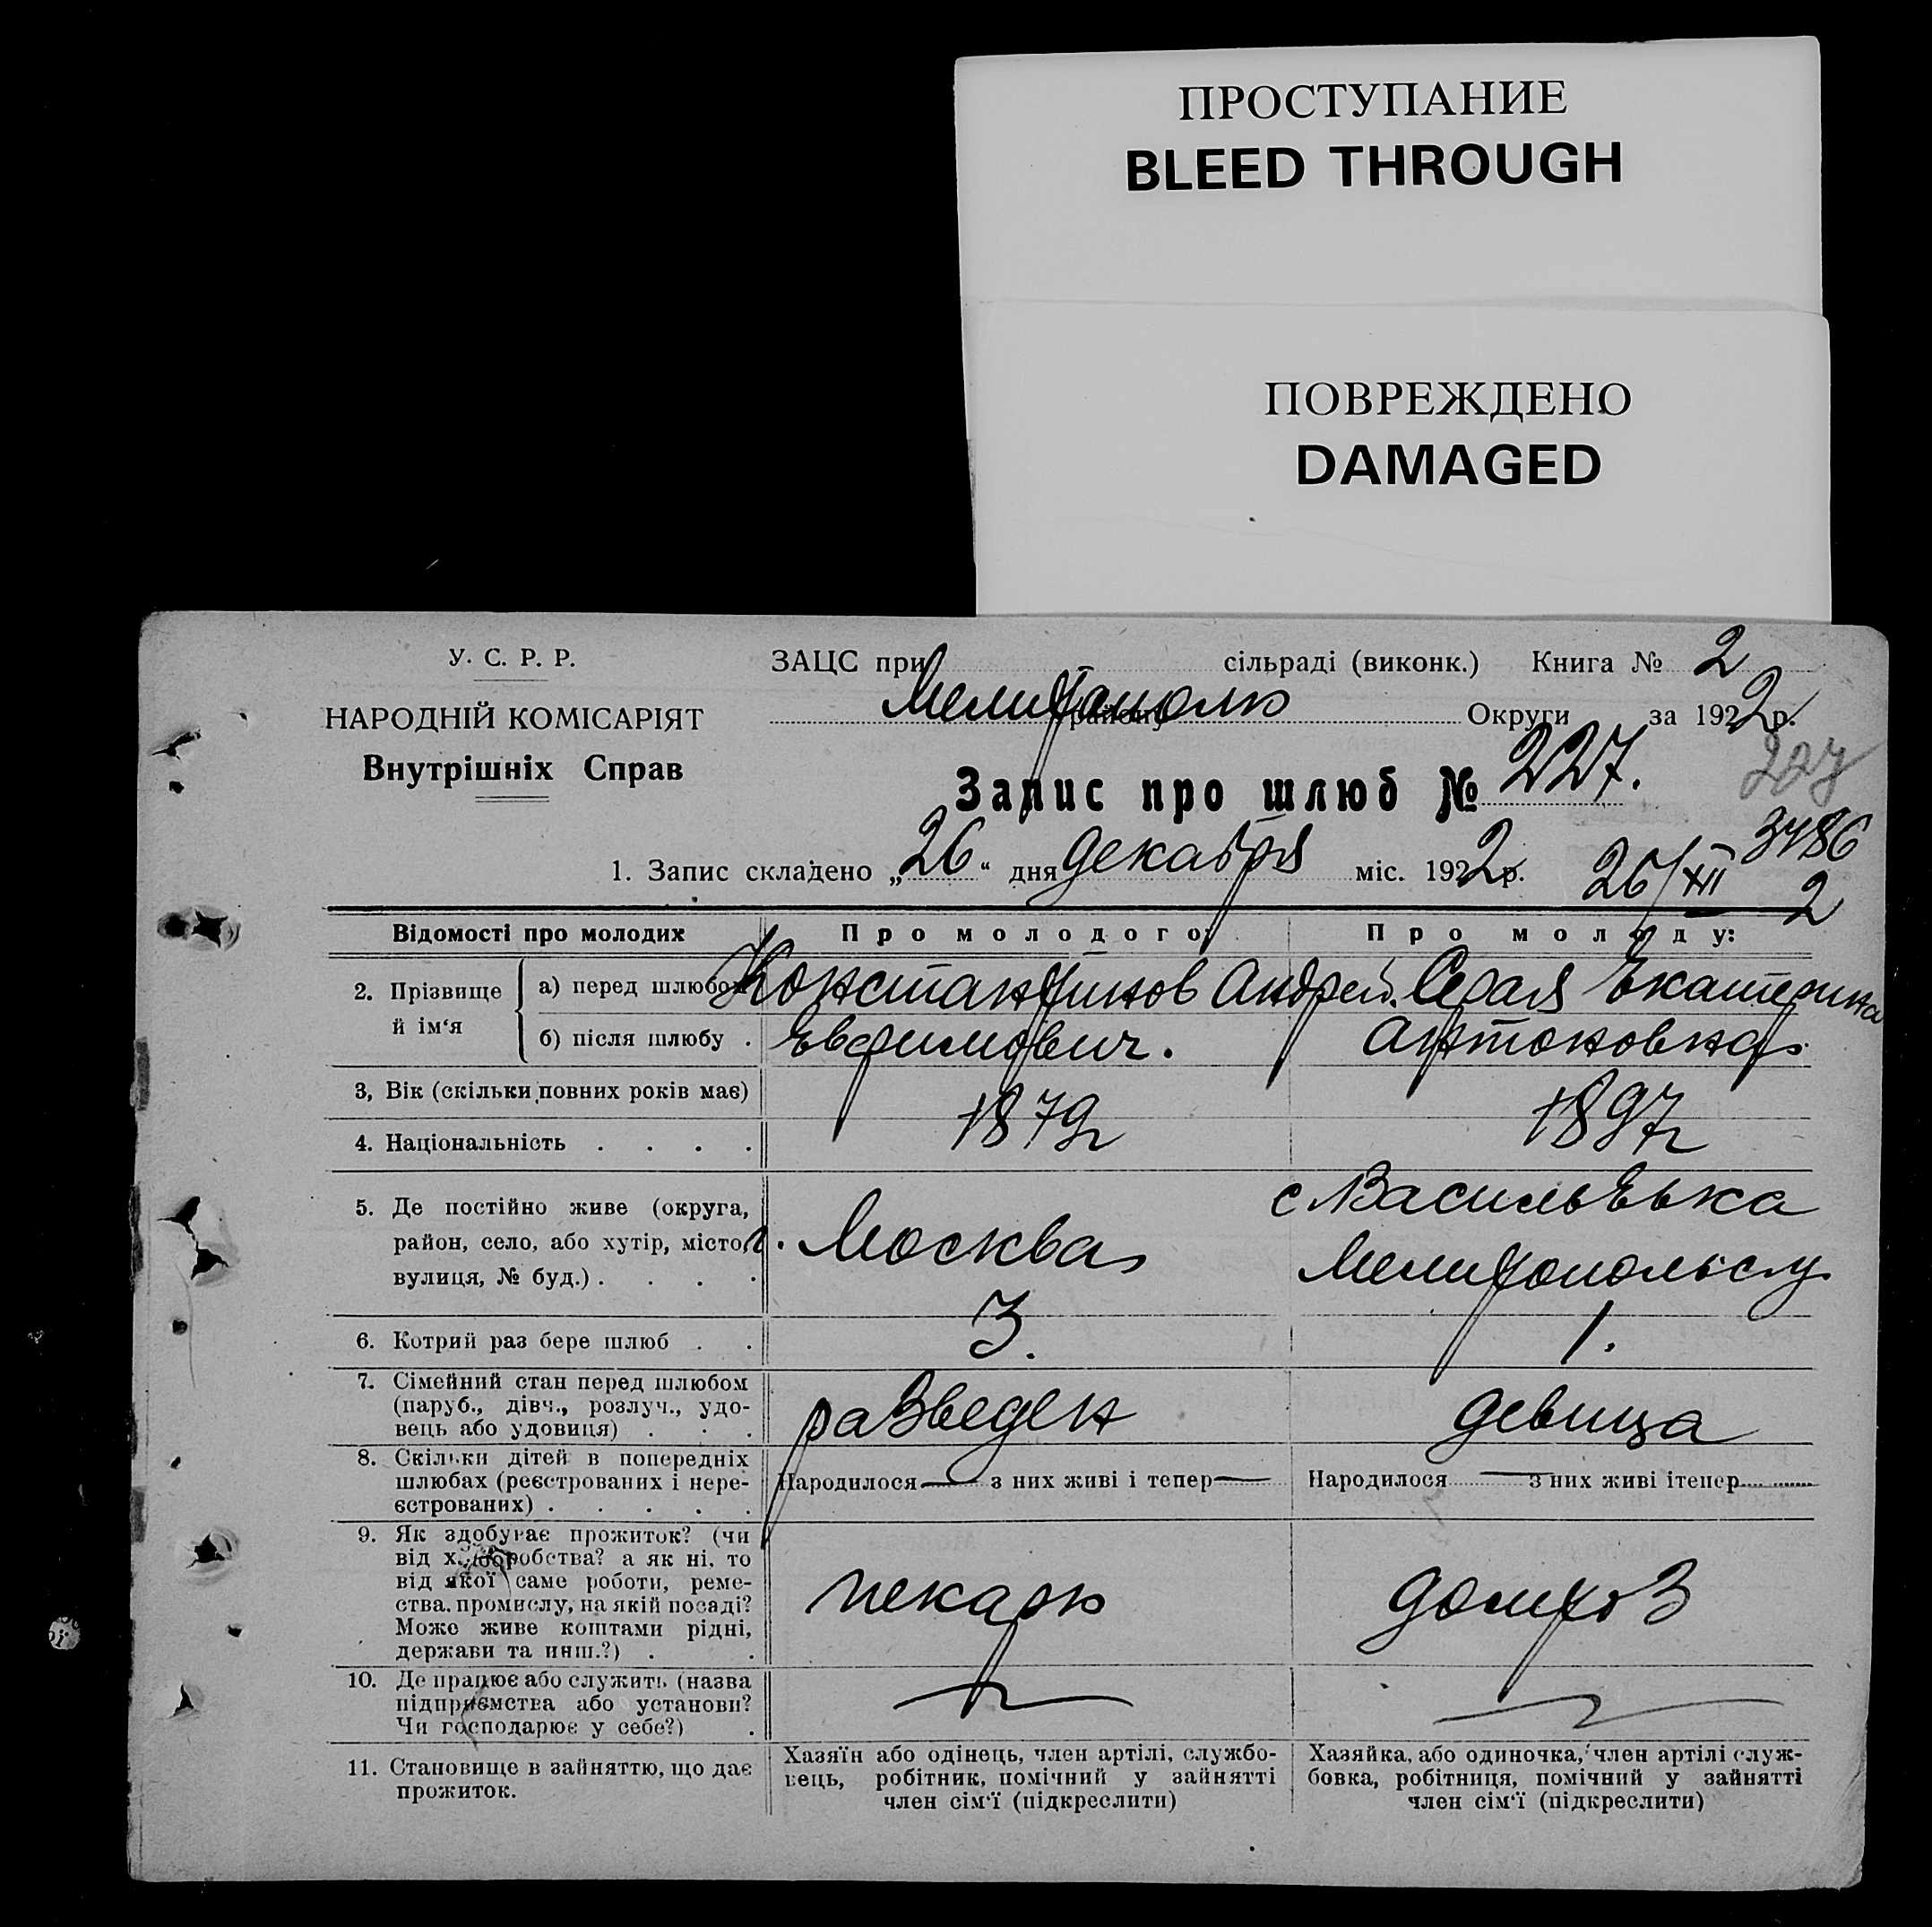 ПРОСТУПАНИЕ
BLEED THROUGH
ПОВРЕЖДЕНО
DAMAGED
У. С. Р. Р.
НАРОДНІЙ КОМІСАРІЯТ
Внутрішніх Справ
ЗАЦС при сільраді (виконк.) Книга № 2
Мелитополь району Округи за 1922 р.
Запис про шлюб № 227.
227
3486
1. Запис складено „26“ дня декабря міс. 1922 р. 26/XII 2
Відомості про молодих Про молодого: Про молоду:
2. Прізвище й ім‘я
а) перед шлюбом Константинов Андрей Серая Екатерина
б) після шлюбу . Евфимович. Антоновна
3, Вік (скільки повних років має) 1879 1897
4. Національність . . . .
5. Де постійно живе (округа, район, село, або хутір, місто, вулиця, № буд.) . . . .
г. Москва
с Васильевка
Мелитопольск у
6. Котрий раз бере шлюб . . 3. 1.
7. Сімейний стан перед шлюбом
(паруб., дівч., розлуч., удо-
вець або удовиця) . . . разведен девица
8. Скільки дітей в попередніх
шлюбах (реєстрованих і нере-
єстрованих) . . . . .
Народилося — з них живі і тепер —
Народилося — з них живі ітепер
9. Як здобуває прожиток? (чи
від хліборобства? а як ні, то
від якої саме роботи, реме-
ства, промислу, на якій посаді?
Може живе коштами рідні,
держави та инш.?) . .
пекарь
домхоз
10. Де працює або служить (назва
підприємства або установи?
Чи господарює у себе?) .
11. Становище в зайняттю, що дає
прожиток.
Хазяїн або одінець, член артілі, службо-
вець, робітник, помічний у зайнятті
член сім‘ї (підкреслити)
Хазяйка, або одиночка, член артілі служ-
бовка, робітниця, помічний у зайнятті
член сім‘ї (підкреслити)